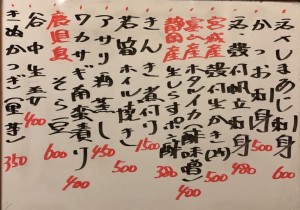 活〆さしまあじ刺身
かつお刺身 500
活〆殻付帆立刺身 600
宮城産 殻付生かき(1ヶ) 480
富山産 ホタルイカ(酢味噌) 400
静岡産 生しらすポン酢 380
きんき煮付け 1500
若笛ホイル焼き 500
アサリ酒蒸し 450
ワカサギ南蛮漬け 400
鹿児島 そら豆 600
谷中生姜 400
きぬかつぎ(里芋) 350